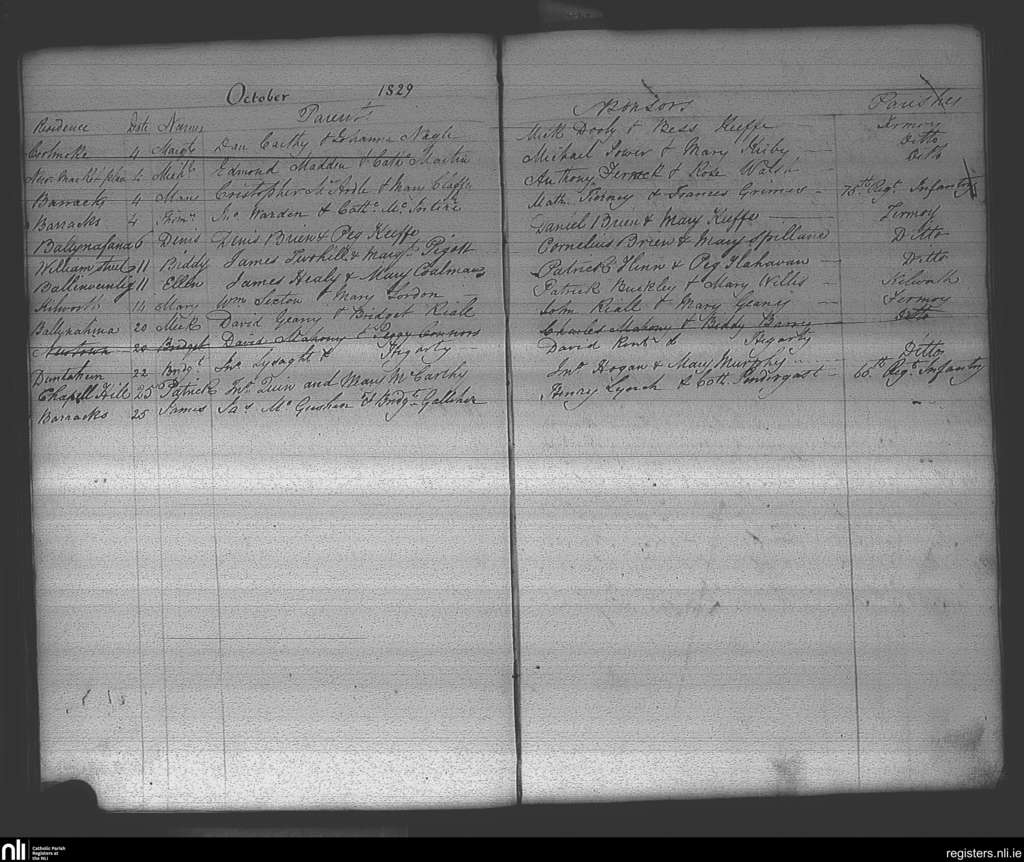 October 1829
Residence Date Names Parents Sponsors Parishes
Coolmoke 4 Margt Dan Carthy & Johanna Nagle Mick Dooly & Bess Keeffe Fermoy
New Market place 4 Michl Edmond Madden & Cathe Martin Michael Power & Mary Kirby Ditto
Barracks 4 Mary Cristopher & Mary Anthony & Rose Walsh Ditto
Barracks 4 Jno Warden & Cathe Mc Math. & Frances Grimes 75th Regt Infantry
Ballynafana 6 Denis Denis Brien & Peg Keeffe Daniel Brien & Mary Keeffe Fermoy
William street 11 Biddy James & Margt Pigott Cornelius Brien & Mary Spillane Ditto
11 Ellen James Healy & Mary Coalman Patrick Flinn & Peg Flahavan Ditto
Kilworth 14 Mary Wm Sexton & Mary Gordon Patrick Buckley & Mary Willis Kilworth
Ballynahina 20 Mick David Geany & Bridget Riall John Riall & Mary Geany Fermoy
Newtown 20 Bridget David Mahony & Peggy Connors Charles Mahony & Biddy Barry Ditto
Duntahein 22 Bridgt Jno Lysaght & Hegarty David & Hegarty
Chapell Hill 25 Patrick Quin and Mary McCarthy Jno Hogan & Mary Murphy Ditto
Barracks 25 James Jas Mc & Bridgt Galliher Henry Lynch & Cath. Pendirgast 66th Regt Infantry
nli Catholic Parish
Registers at
the NLI
registers.nli.ie